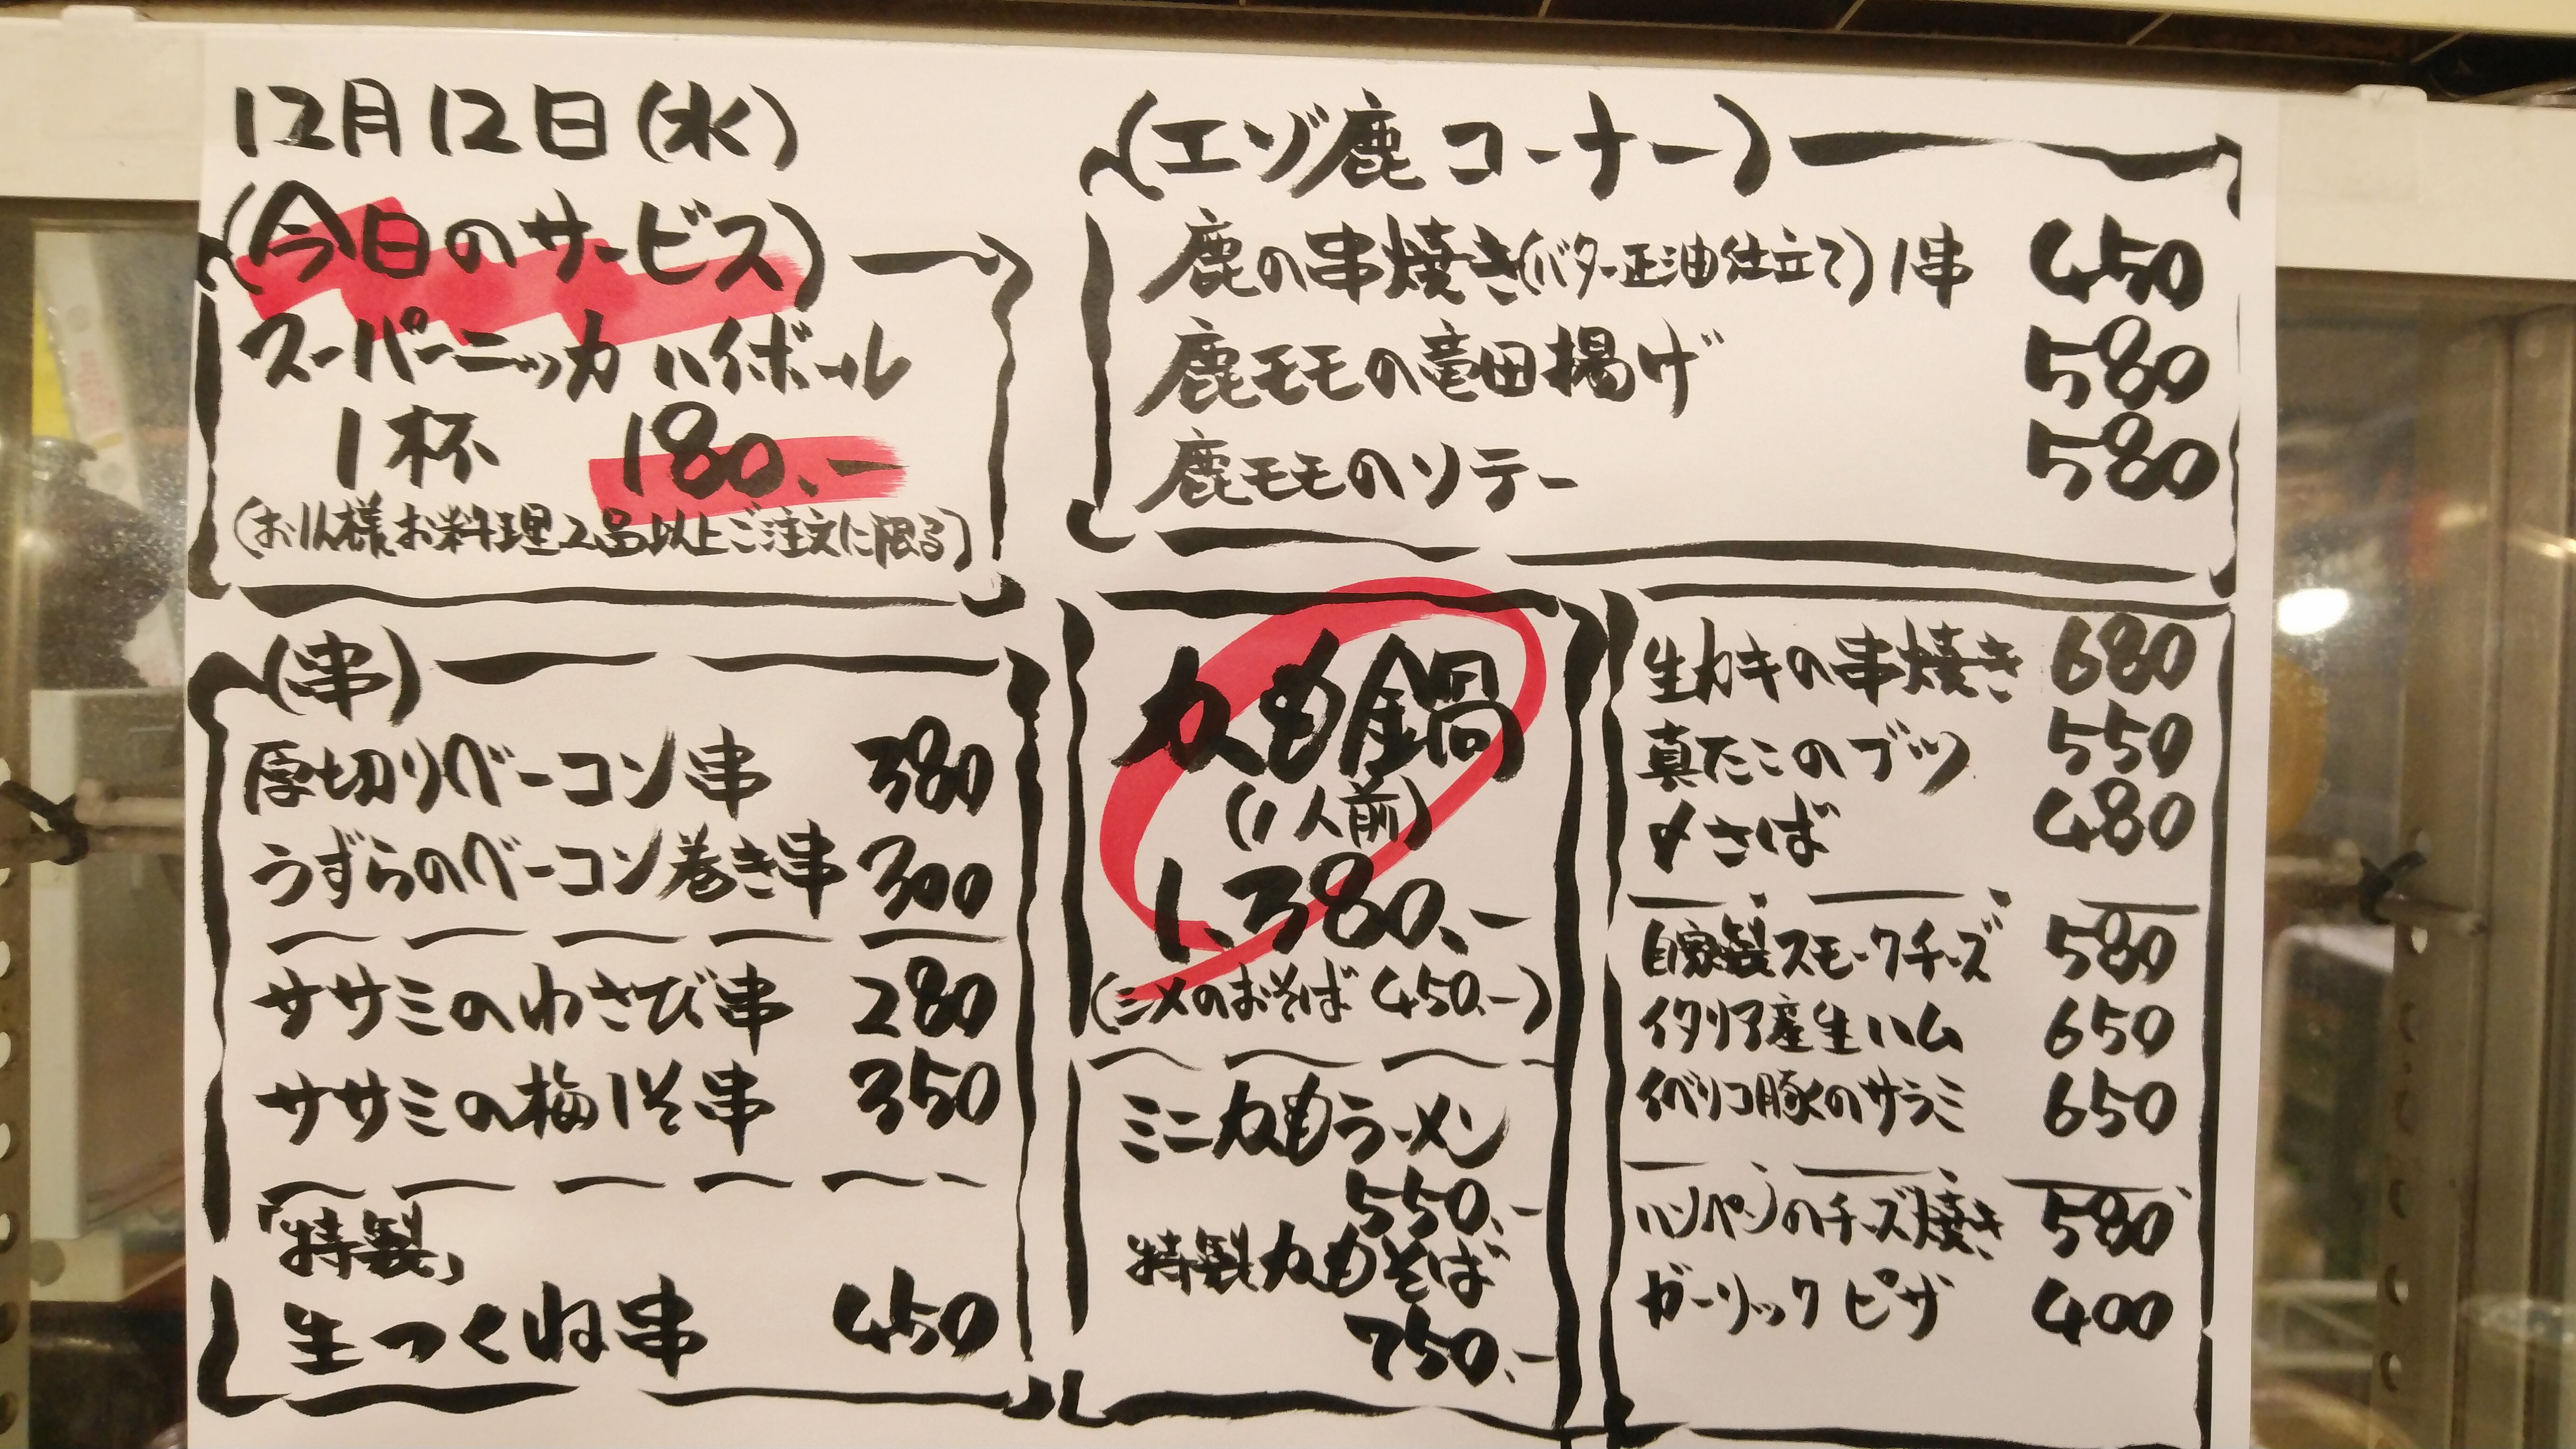 12月12日(水)
(今日のサービス)
スーパーニッカ ハイボール
1杯 180.-
(お1人様お料理2品以上ご注文に限る)
(エゾ鹿コーナー)
鹿の串焼き(バター正油仕立て)1串 450
鹿モモの竜田揚げ 580
鹿モモのソテー 580
(串)
厚切りベーコン串 380
うずらのベーコン巻き串 300
ササミのわさび串 280
ササミの梅しそ串 350
「特製」
生つくね串 450
カモ鍋
(1人前)
1,380.-
(シメのおそば 450.-)
ミニカモラーメン
550.-
特製カモそば
750.-
生カキの串焼き 680
真たこのブツ 550
〆さば 480
自家製スモークチーズ 580
イタリア産生ハム 650
イベリコ豚のサラミ 650
ハンペンのチーズ焼き 580
ガーリックピザ 400